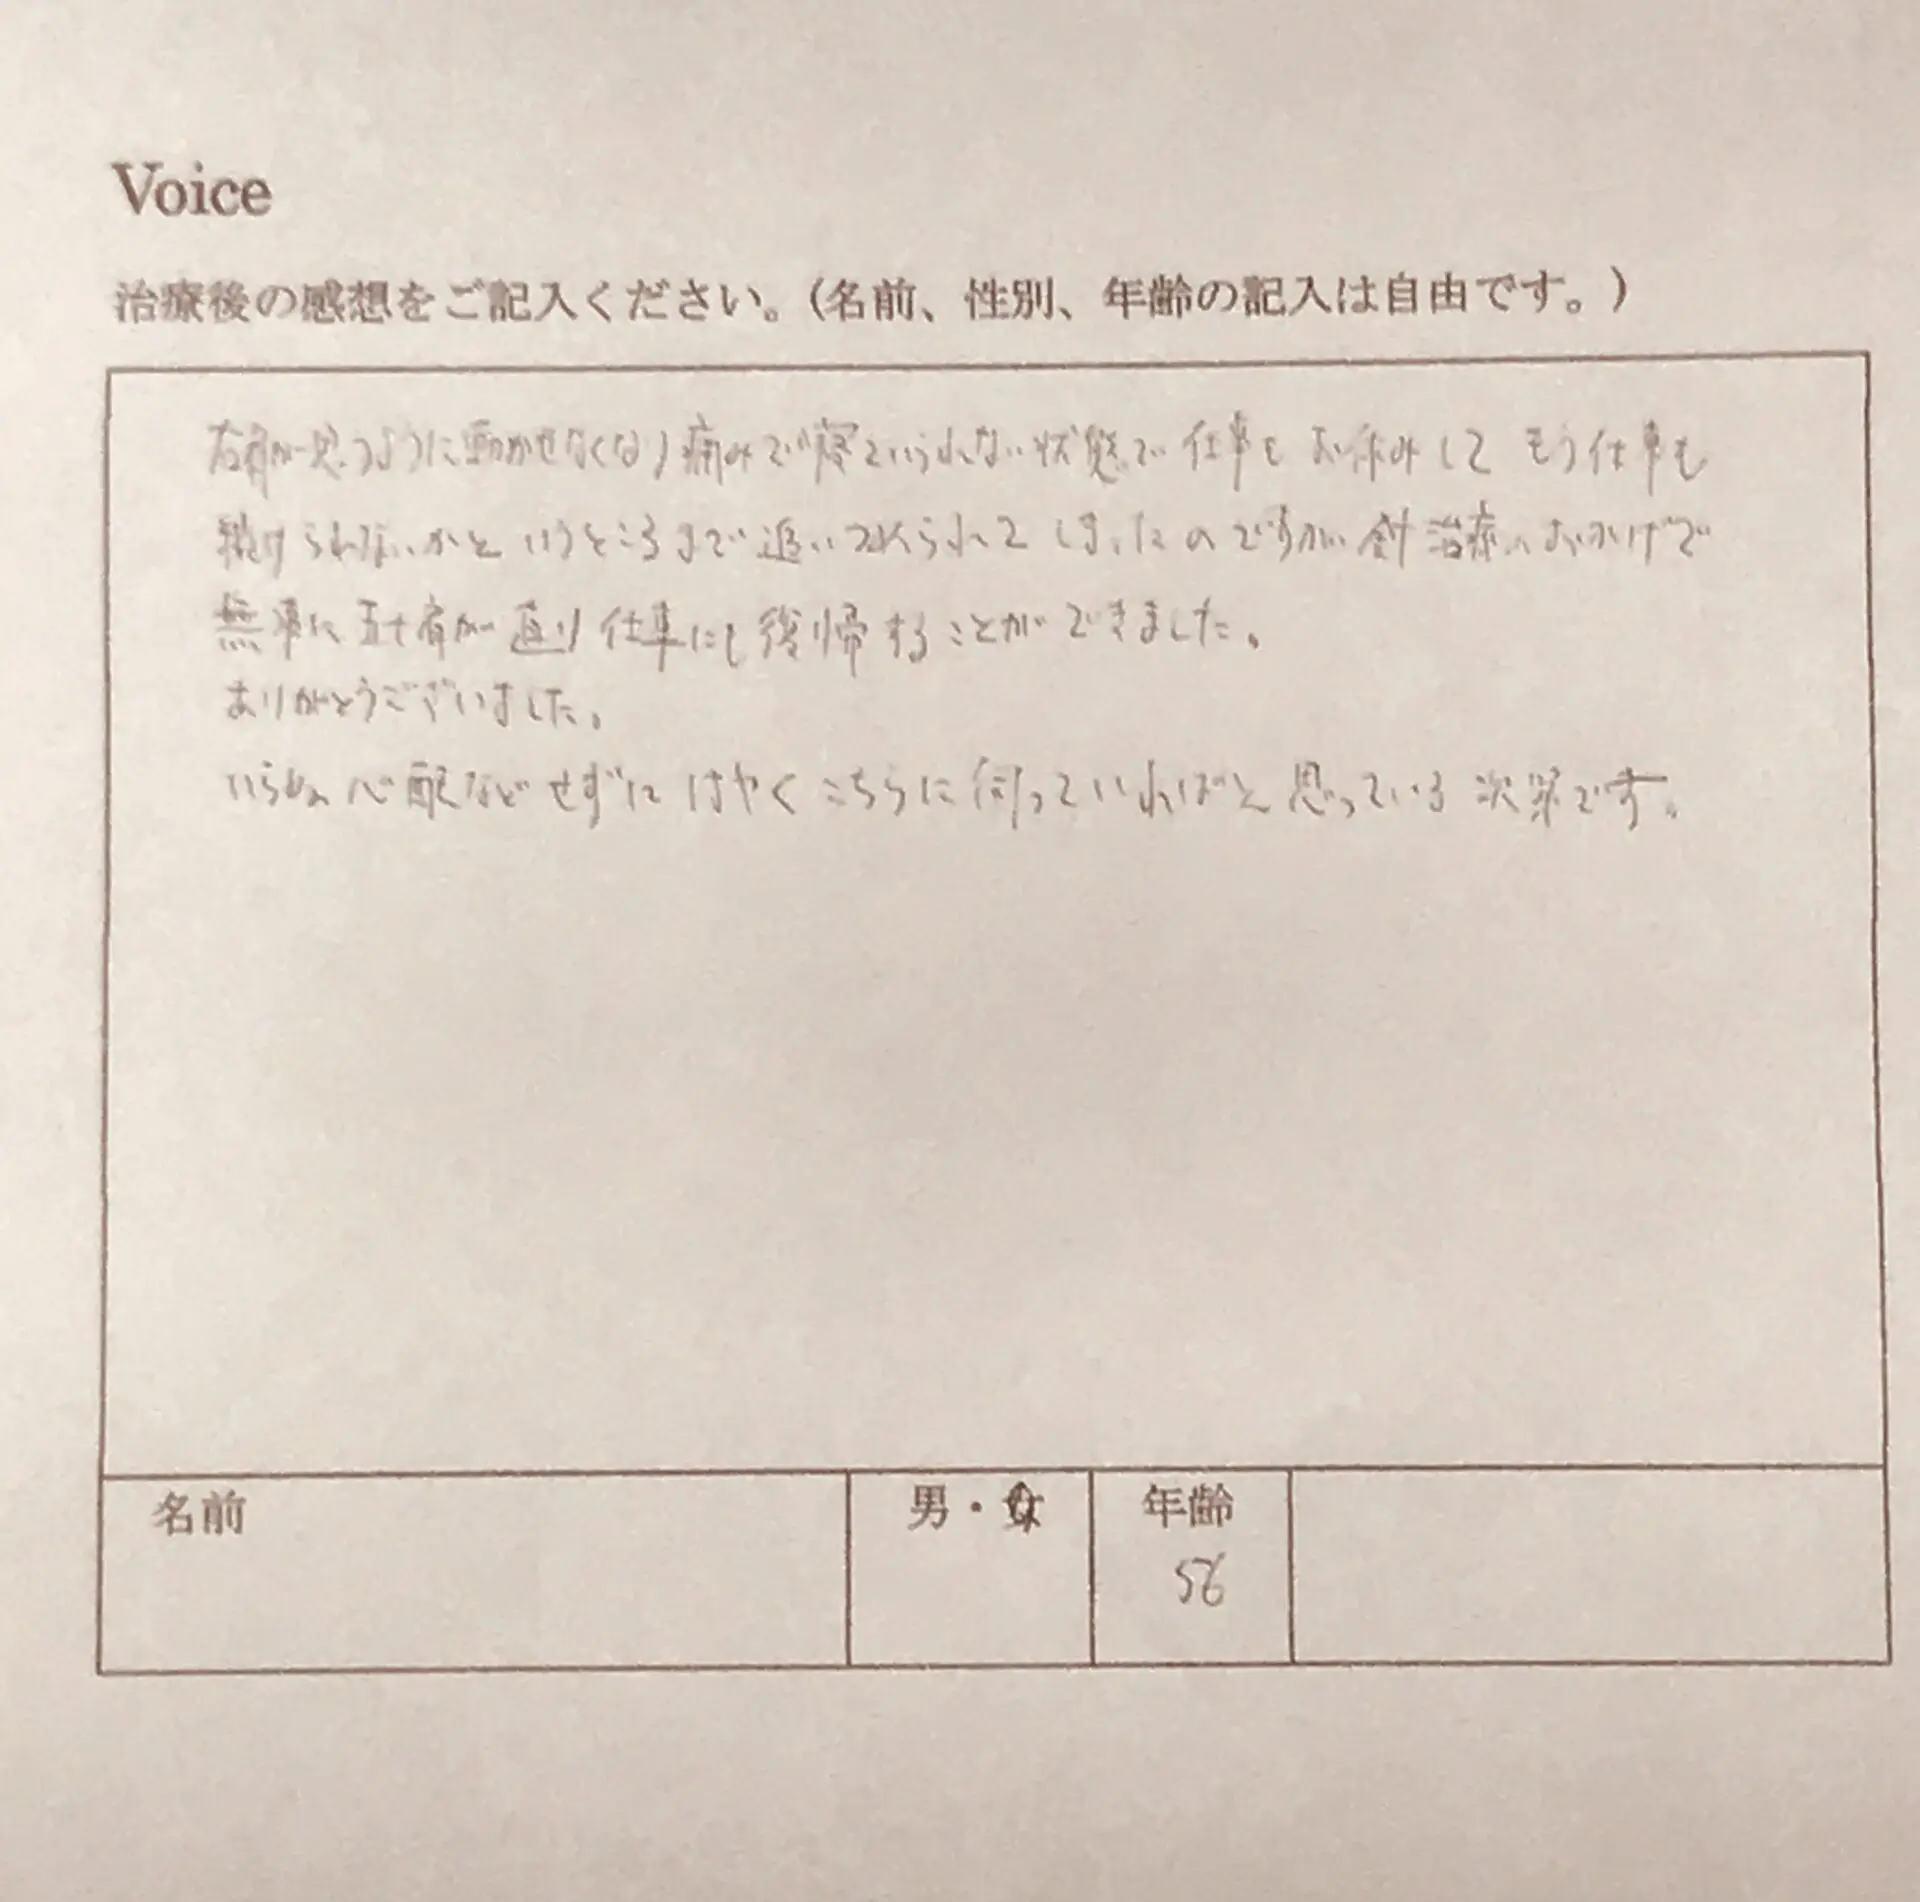 Voice
治療後の感想をご記入ください。(名前、性別、年齢の記入は自由です。)
右肩が思うように動かせなくなり痛みで寝ていられない状態で仕事もお休みしてもう仕事も
続けられないかというところまで追いつめられてしまったのですが針治療のおかげで
無事に五十肩が直り仕事にも復帰することができました。
ありがとうございました。
いらぬ心配などせずにはやくこちらに伺っていればと思っている次第です。
名前 男・女 年齢
56